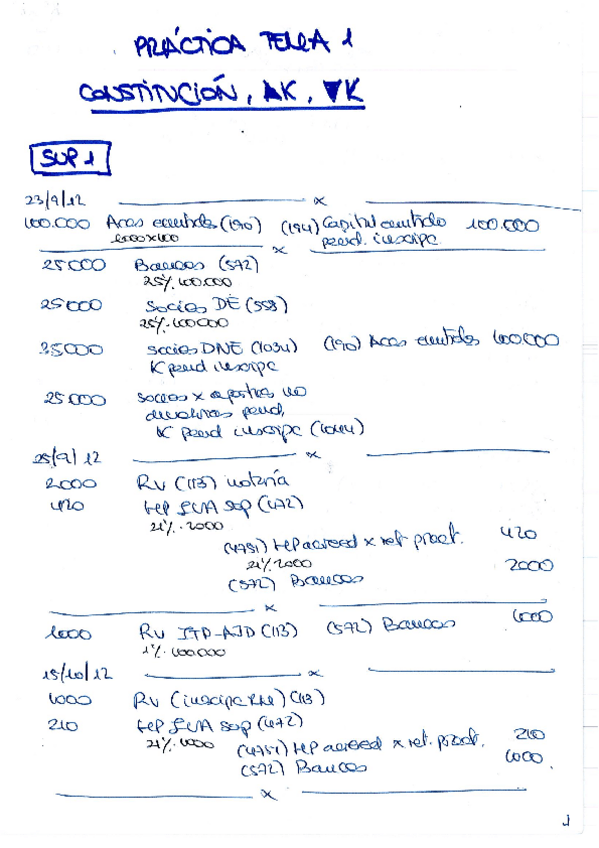 PRÁCTICA TEMA 1
CONSTITUCIÓN, ▲K, ▼K
SUP 1
23/9/12 x
100.000 Accs emitidas (190) (194) Capital emitido 100.000
1000x100 pend. inscipc
x
25000 Bancos (572)
25%.100.000
25000 Socios DE (558)
25%.100000
25000 socios DNE (1034) (190) Accs emitidas 100000
K pend inscipc
25000 socios x aportac no
dinerarias pend,
K pend inscipc (1044)
25/9/12 x
2000 RV (113) notaría
420 HP IVA sop (472)
21%.2000
(4751) HP acreed x ret. pract. 420
21%.2000 2000
(572) Bancos
x
1000 RV ITP-AJD (113) (572) Bancos 1000
1%.100.000
15/10/12 x
1000 RV (inscipc RM) (113)
210 HP IVA sop (472)
21%.1000 (4751) HP acreed x ret. pract. 210
(572) Bancos 1000.
x
1